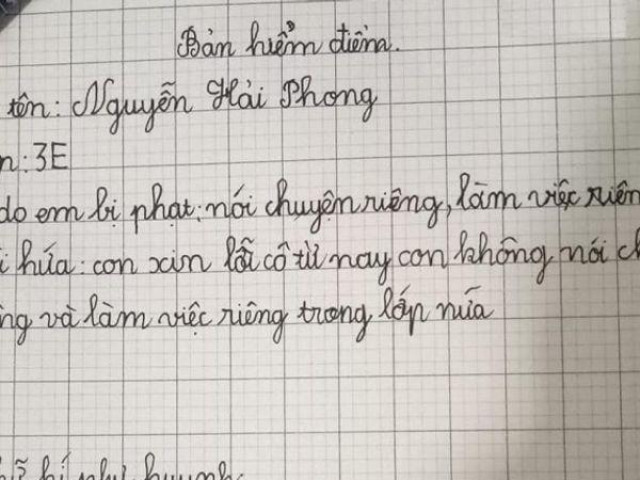 Bản hiểm điểm.
tên: Nguyễn Hải Phong
n: 3E
do em bị phạt: nói chuyện riêng, làm việc riên
i hứa: con xin lỗi cô từ nay con không nói ch
ng và làm việc riêng trong lớp nữa